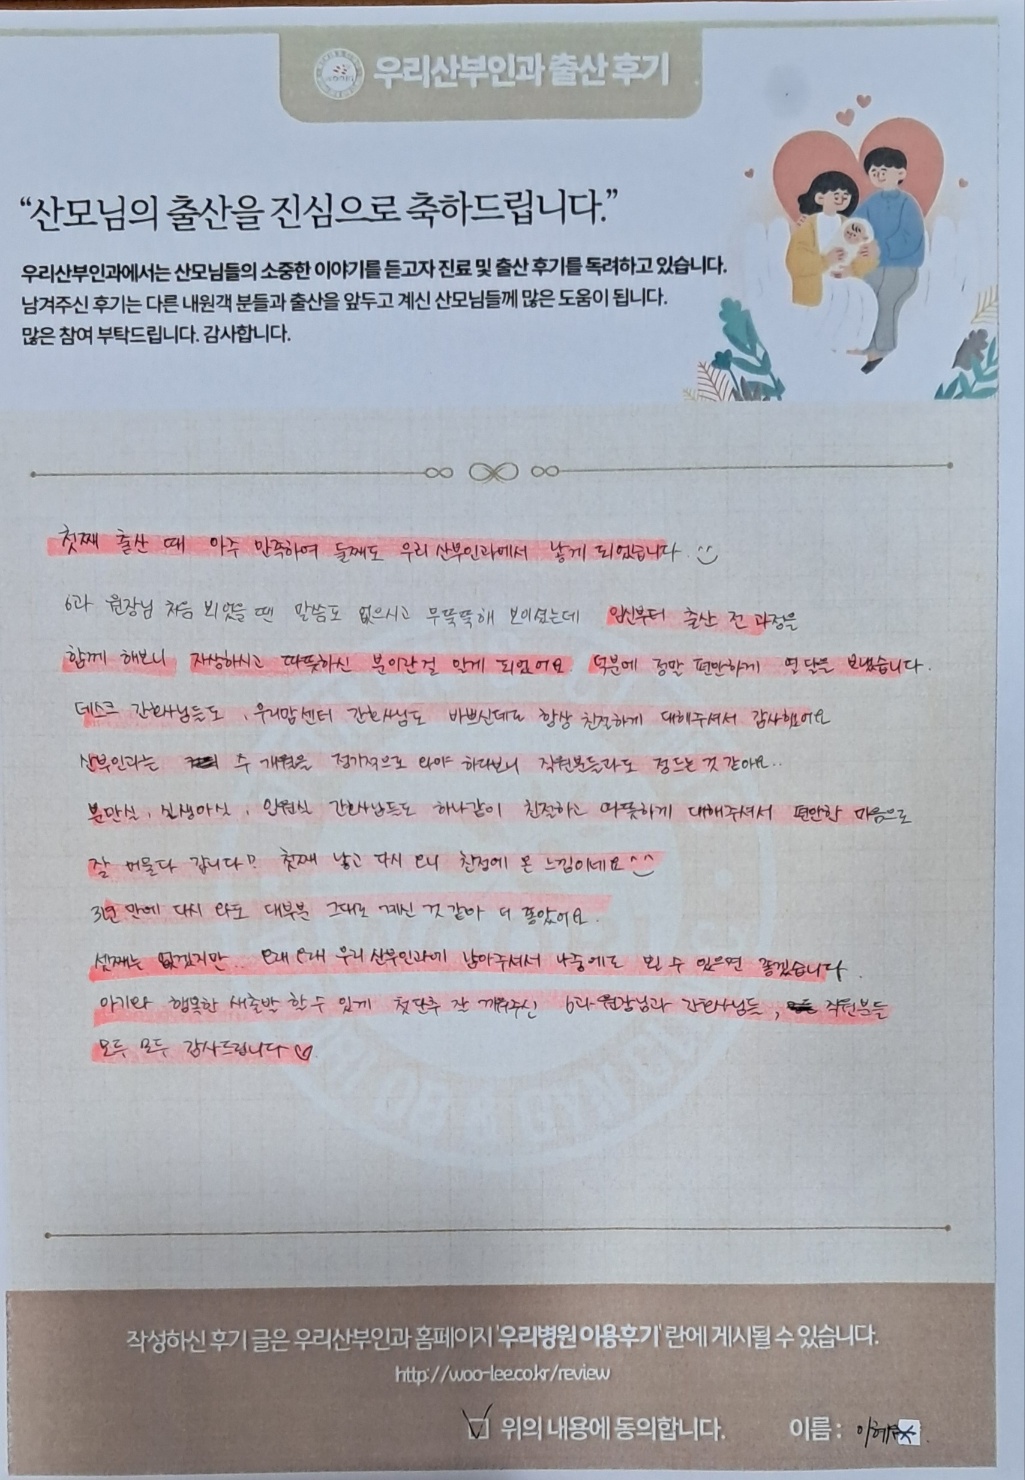 우리산부인과 출산 후기
“산모님의 출산을 진심으로 축하드립니다.”
우리산부인과에서는 산모님들의 소중한 이야기를 듣고자 진료 및 출산 후기를 독려하고 있습니다.
남겨주신 후기는 다른 내원객 분들과 출산을 앞두고 계신 산모님들께 많은 도움이 됩니다.
많은 참여 부탁드립니다. 감사합니다.
첫째 출산 때 아주 만족하여 둘째도 우리 산부인과에서 낳게 되었습니다.
6과 원장님 처음 뵈었을 땐 말씀도 없으시고 무뚝뚝해 보이셨는데 임신부터 출산 전 과정을
함께 해보니 자상하시고 따뜻하신 분이란걸 알게 되었어요. 덕분에 정말 편안하게 열 달을 보냈습니다.
데스크 간호사님들도, 우리맘센터 간호사님도 바쁘신데도 항상 친절하게 대해주셔서 감사했어요
산부인과는 수 개월을 정기적으로 와야 하다보니 직원분들과도 정드는 것 같아요..
분만실, 신생아실, 입원실 간호사님들도 하나같이 친절하고 따뜻하게 대해주셔서 편안한 마음으로
잘 머물다 갑니다! 첫째 낳고 다시 오니 친정에 온 느낌이네요^^
3년 만에 다시 와도 대부분 그대로 계신 것 같아 더 좋았어요.
셋째는 없겠지만.. 오래 오래 우리 산부인과에 남아주셔서 나중에도 뵐 수 있으면 좋겠습니다.
아기와 행복한 새출발 할 수 있게 첫단추 잘 끼워주신 6과 원장님과 간호사님들, 직원분들
모두 모두 감사드립니다♡
작성하신 후기 글은 우리산부인과 홈페이지 '우리병원 이용후기' 란에 게시될 수 있습니다.
http://woo-lee.co.kr/review
위의 내용에 동의합니다. 이름 : 이혜